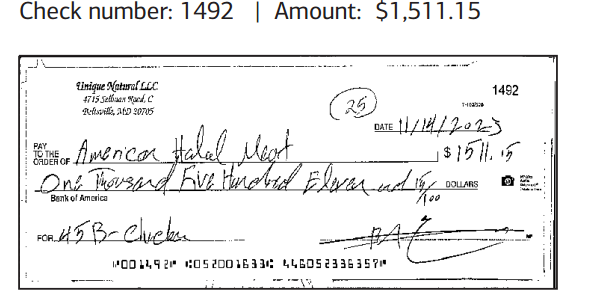 Check number: 1492 | Amount: $1,511.15
Unique Natural LLC
1492
4715 Sellman Road, C
Beltsville, MD 20705
25
1-102/520
DATE 11/14/2023
PAY TO THE ORDER OF American Halal Meat $ 1511.15
One Thousand Five Hundred Eleven and 15/100 DOLLARS
Bank of America
FOR 45 B-Chicken
⑈001492⑈ ⑆052001633⑆ 446052336357⑈